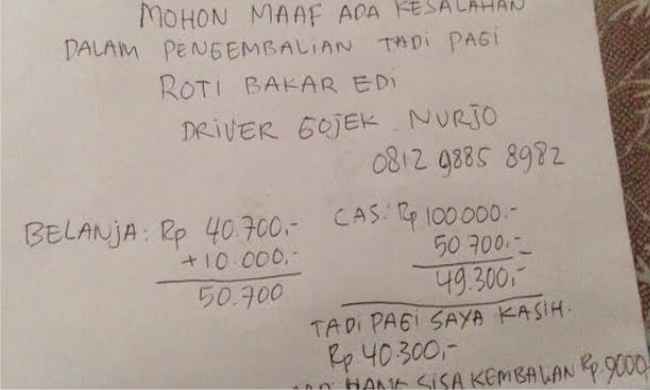 MOHON MAAF ADA KESALAHAN
DALAM PENGEMBALIAN TADI PAGI
ROTI BAKAR EDI
DRIVER GOJEK NURJO
0812 9885 8982
BELANJA: Rp 40.700,-
+10.000,-
50.700
CAS: Rp 100.000.-
50.700,-
49.300,-
TADI PAGI SAYA KASIH.
Rp 40.300,-
SISA KEMBALAN Rp.9000